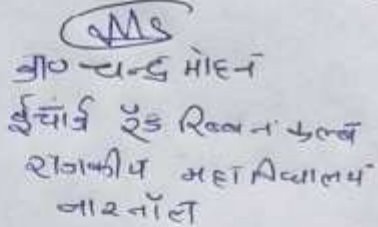 प्रो० चन्द्र मोहन
ईंचार्ज रैड रिब्बन क्लब
राजकीय महाविद्यालय
नारनौल